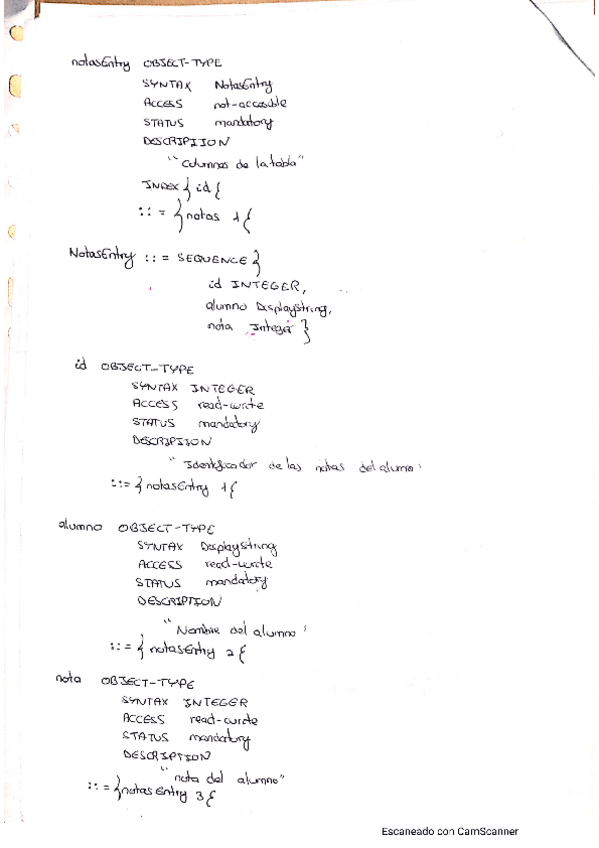 notasEntry OBJECT-TYPE
SYNTAX NotasEntry
ACCESS not-accesible
STATUS mandatory
DESCRIPTION
"Columnas de la tabla"
INDEX } id {
::= } notas 1 {
NotasEntry ::= SEQUENCE }
id INTEGER,
alumno DisplayString,
nota Integer }
id OBJECT-TYPE
SYNTAX INTEGER
ACCESS read-write
STATUS mandatory
DESCRIPTION
"Identificador de las notas del alumno"
::= { notasEntry 1 {
alumno OBJECT-TYPE
SYNTAX DisplayString
ACCESS read-write
STATUS mandatory
DESCRIPTION
"Nombre del alumno"
::= { notasEntry 2 {
nota OBJECT-TYPE
SYNTAX INTEGER
ACCESS read-write
STATUS mandatory
DESCRIPTION
"nota del alumno"
::= } notasEntry 3 {
Escaneado con CamScanner